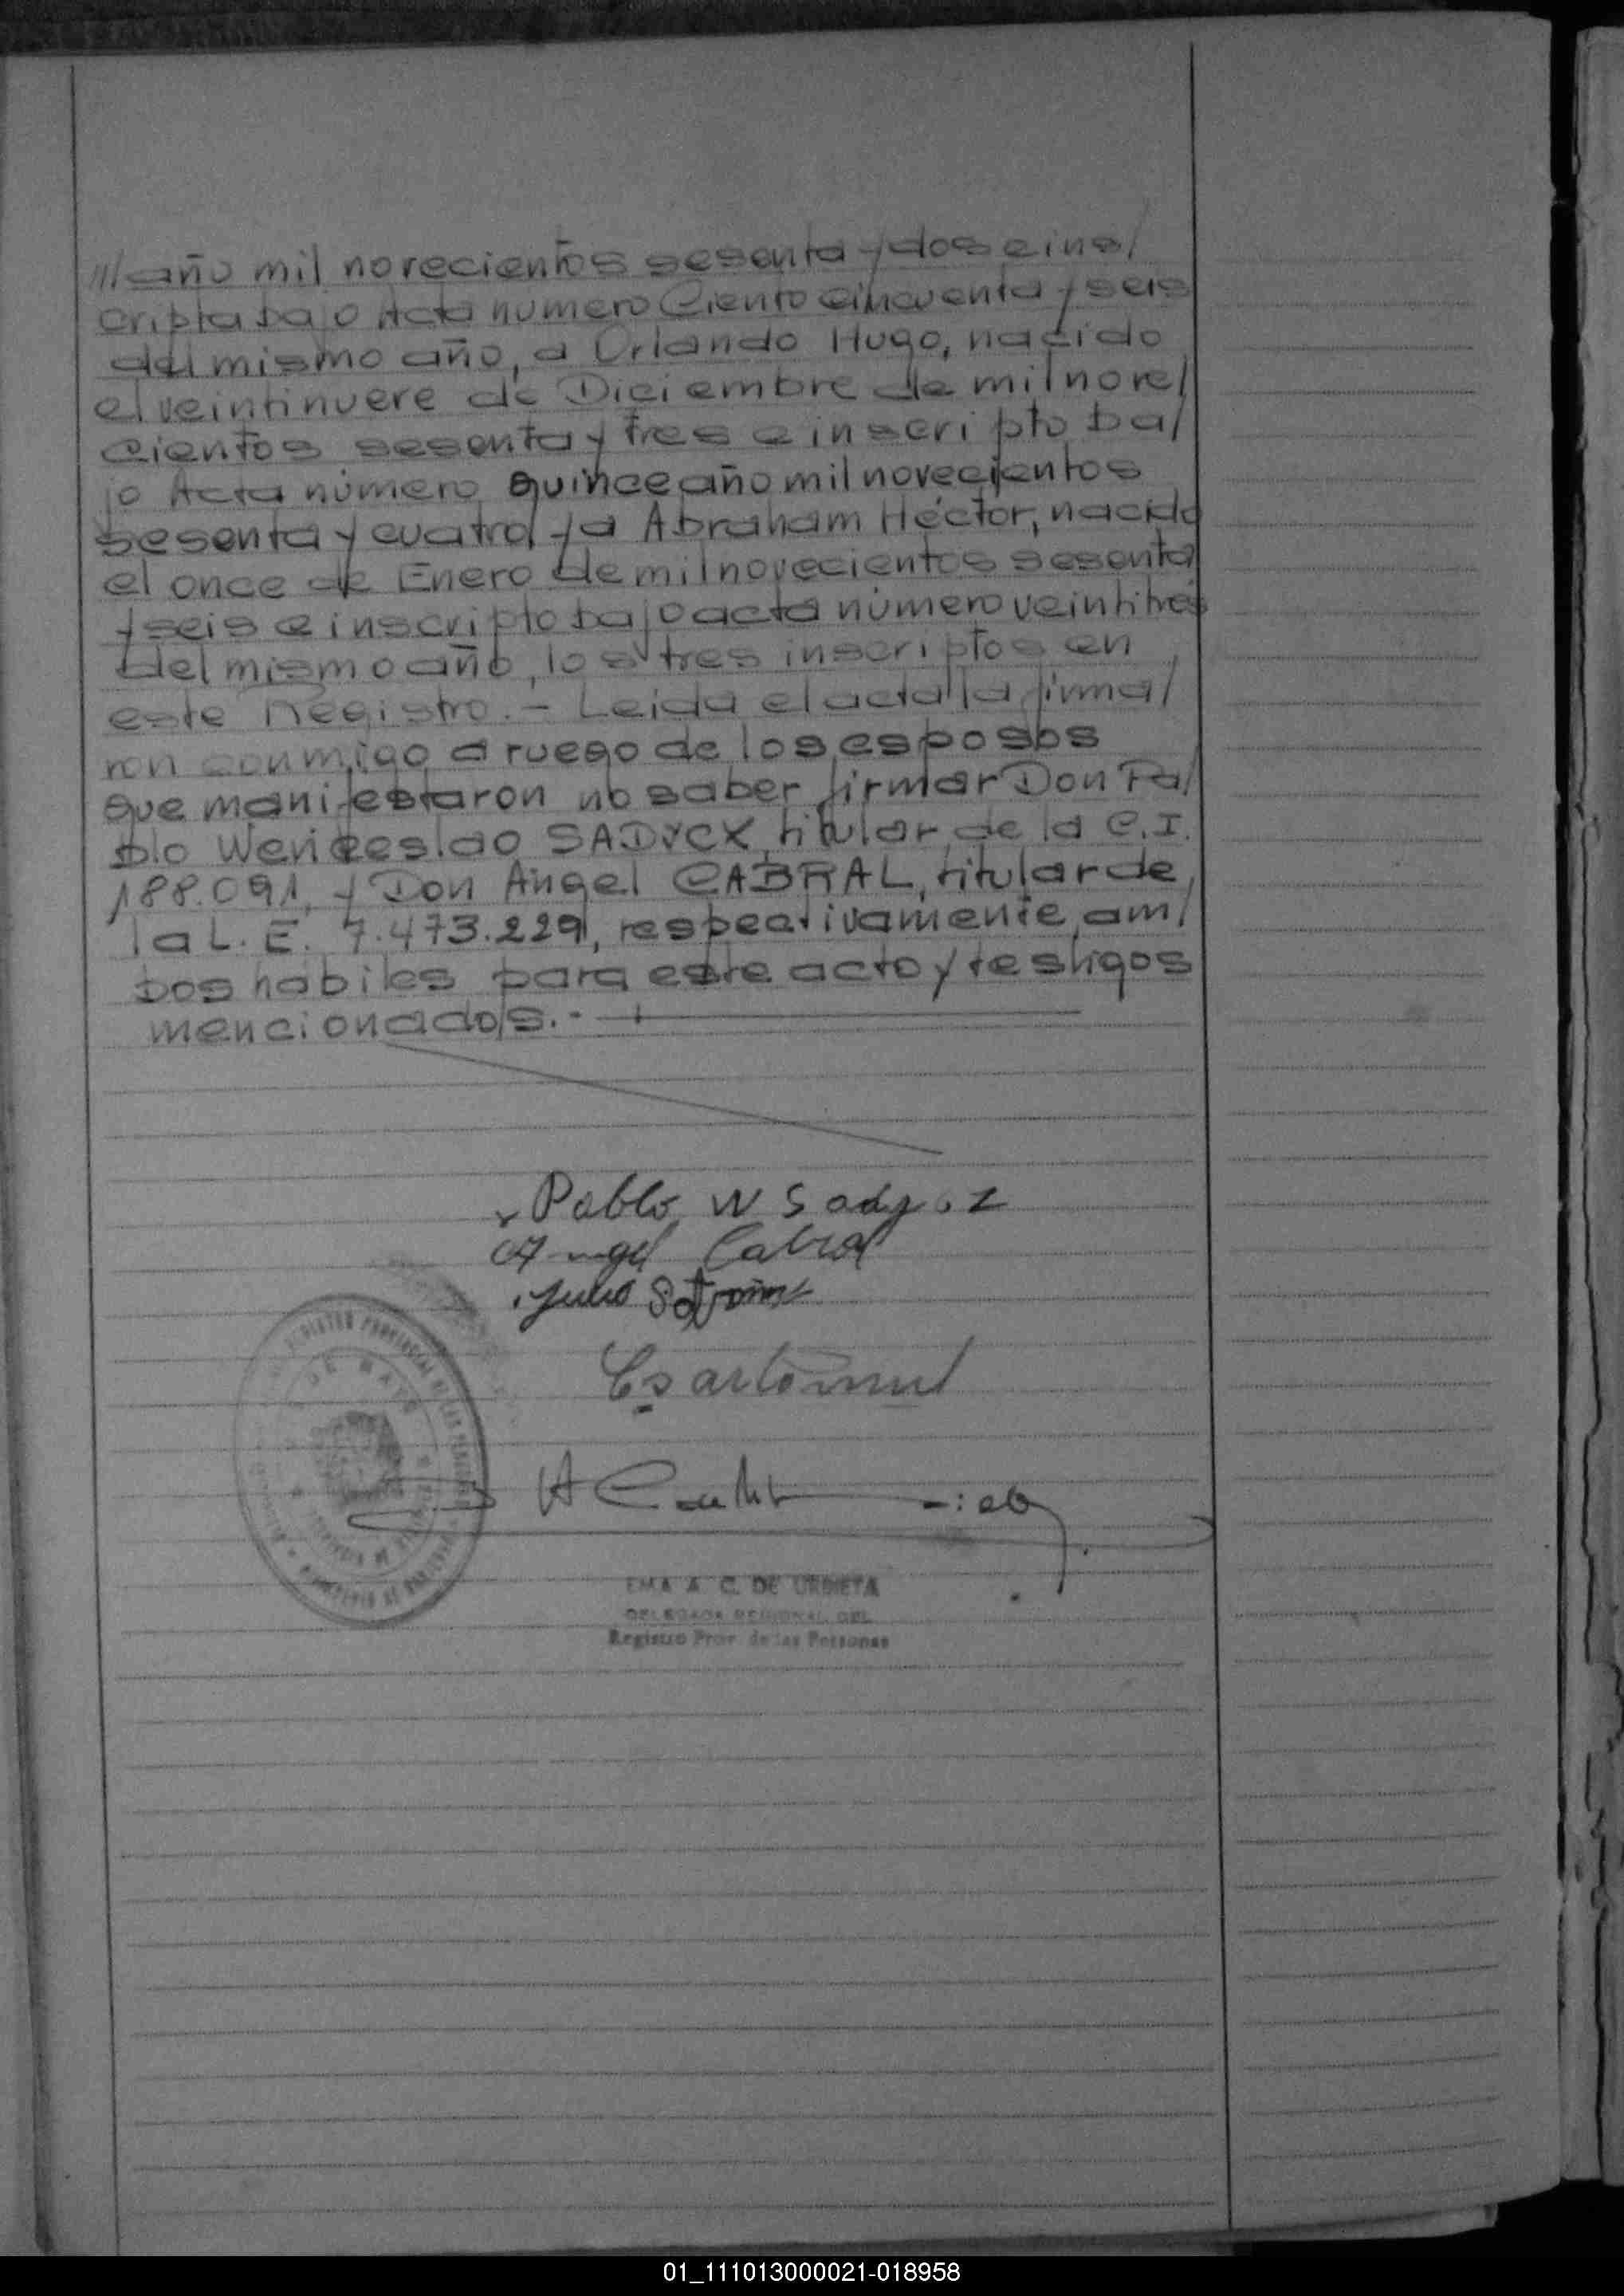 ///año mil novecientos sesenta y dos e ins/
cripta bajo Acta número Ciento cincuenta y seis
del mismo año, a Orlando Hugo, nacido
el veintinueve de Diciembre de mil nove/
cientos sesenta y tres e inscripto ba/
jo Acta número quince año mil novecientos
sesenta y cuatro, y a Abraham Héctor, nacido
el once de Enero de mil novecientos sesenta
y seis e inscripto bajo acta número veintitrés
del mismo año, los tres inscriptos en
este Registro.- Leida el acta la firma/
ron conmigo a ruego de los esposos
que manifestaron no saber firmar Don Pa/
blo Wenceslao titular de la C.I.
188.091, y Don Angel CABRAL, titular de
la L.E. 7.473.229, respectivamente, am/
bos hábiles para este acto y testigos
mencionados.-
Pablo W
Angel Cabral
Julio
REGISTRO PROVINCIAL DE LAS PERSONAS
EMA A C. DE URBIETA
DELEGADA REGIONAL DEL
Registro Prov. de las Personas
01_111013000021-018958